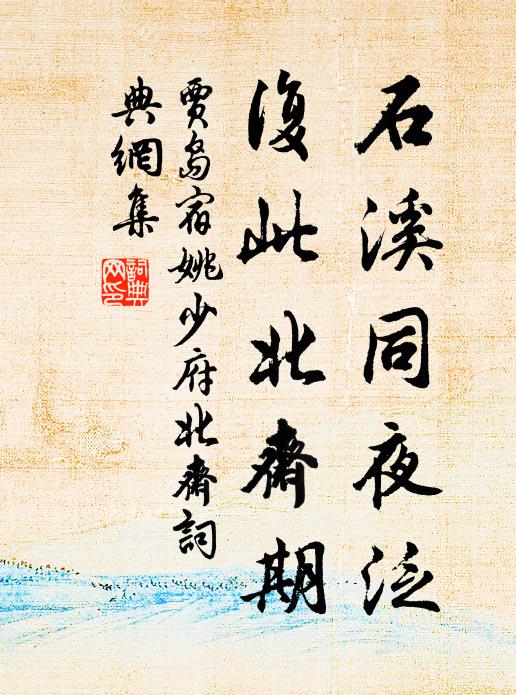 石溪同夜泛
復此北齋期
賈島宿姚少府北齋詞
典網集
詞典
网印